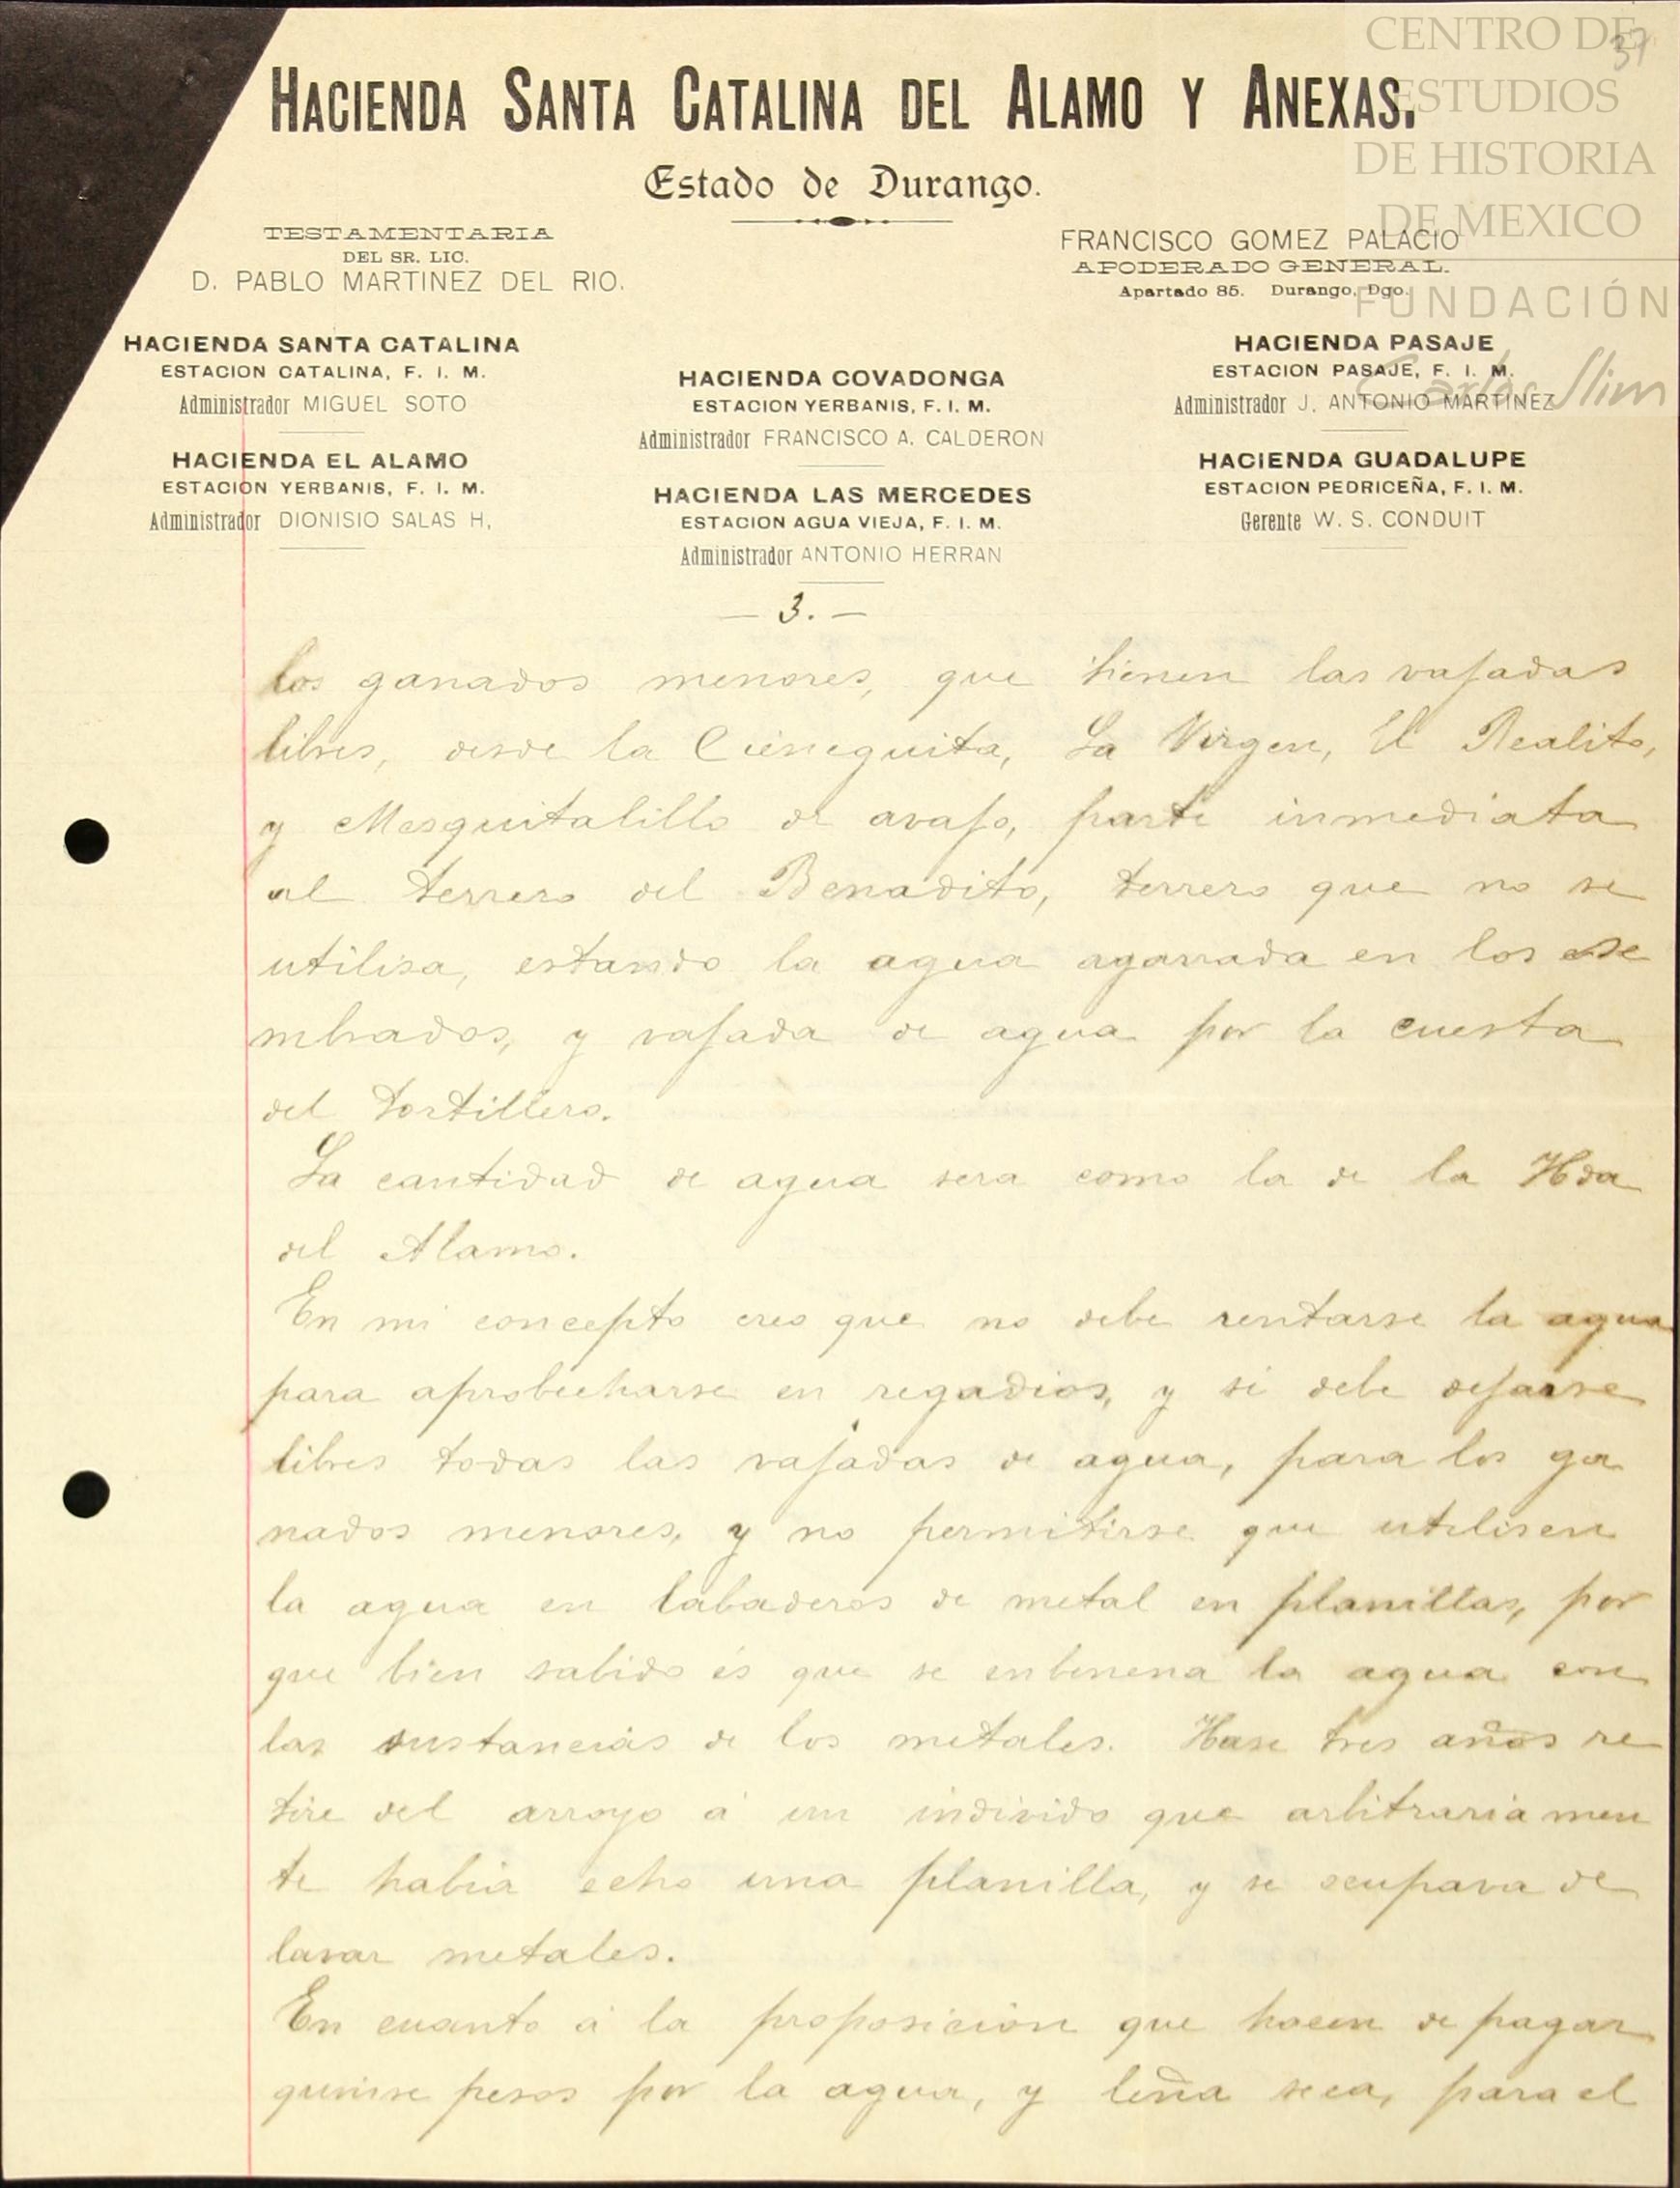 CENTRO DE
ESTUDIOS
DE HISTORIA
DE MEXICO
FUNDACIÓN
Carlos Slim
37
HACIENDA SANTA CATALINA DEL ALAMO Y ANEXAS.
Estado de Durango.
TESTAMENTARIA
DEL SR. LIC.
D. PABLO MARTINEZ DEL RIO.
FRANCISCO GOMEZ PALACIO
APODERADO GENERAL.
Apartado 85. Durango, Dgo.
HACIENDA SANTA CATALINA
ESTACION CATALINA, F. I. M.
Administrador MIGUEL SOTO
HACIENDA EL ALAMO
ESTACION YERBANIS, F. I. M.
Administrador DIONISIO SALAS H,
HACIENDA COVADONGA
ESTACION YERBANIS, F. I. M.
Administrador FRANCISCO A. CALDERON
HACIENDA LAS MERCEDES
ESTACION AGUA VIEJA, F. I. M.
Administrador ANTONIO HERRAN
HACIENDA PASAJE
ESTACION PASAJE, F. I. M.
Administrador J. ANTONIO MARTINEZ
HACIENDA GUADALUPE
ESTACION PEDRICEÑA, F. I. M.
Gerente W. S. CONDUIT
— 3. —
los ganados menores, que tienen las vajadas
libres, desde la Cieneguita, La Virgen, El Realito,
y Mesquitalillo de avajo, parte inmediata
al terrero del Benadito, terrero que no se
utilisa, estando la agua agarrada en los se
mbrados, y vajada de agua por la cuesta
del tortillero.
La cantidad de agua sera como la de la Hda
del Alamo.
En mi concepto creo que no debe rentarse la agua
para aprobecharse en regadios, y si debe dejarse
libres todas las vajadas de agua, para los ga
nados menores, y no permitirse que utilisen
la agua en labaderos de metal en planillas, por
que bien sabido és que se enbenena la agua con
las sustancias de los metales. Hase tres años re
tire del arroyo á un individo que arbitrariamen
te habia echo una planilla, y se ocupava de
lavar metales.
En cuanto á la proposición que hacen de pagar
quinse pesos por la agua, y leña seca, para el